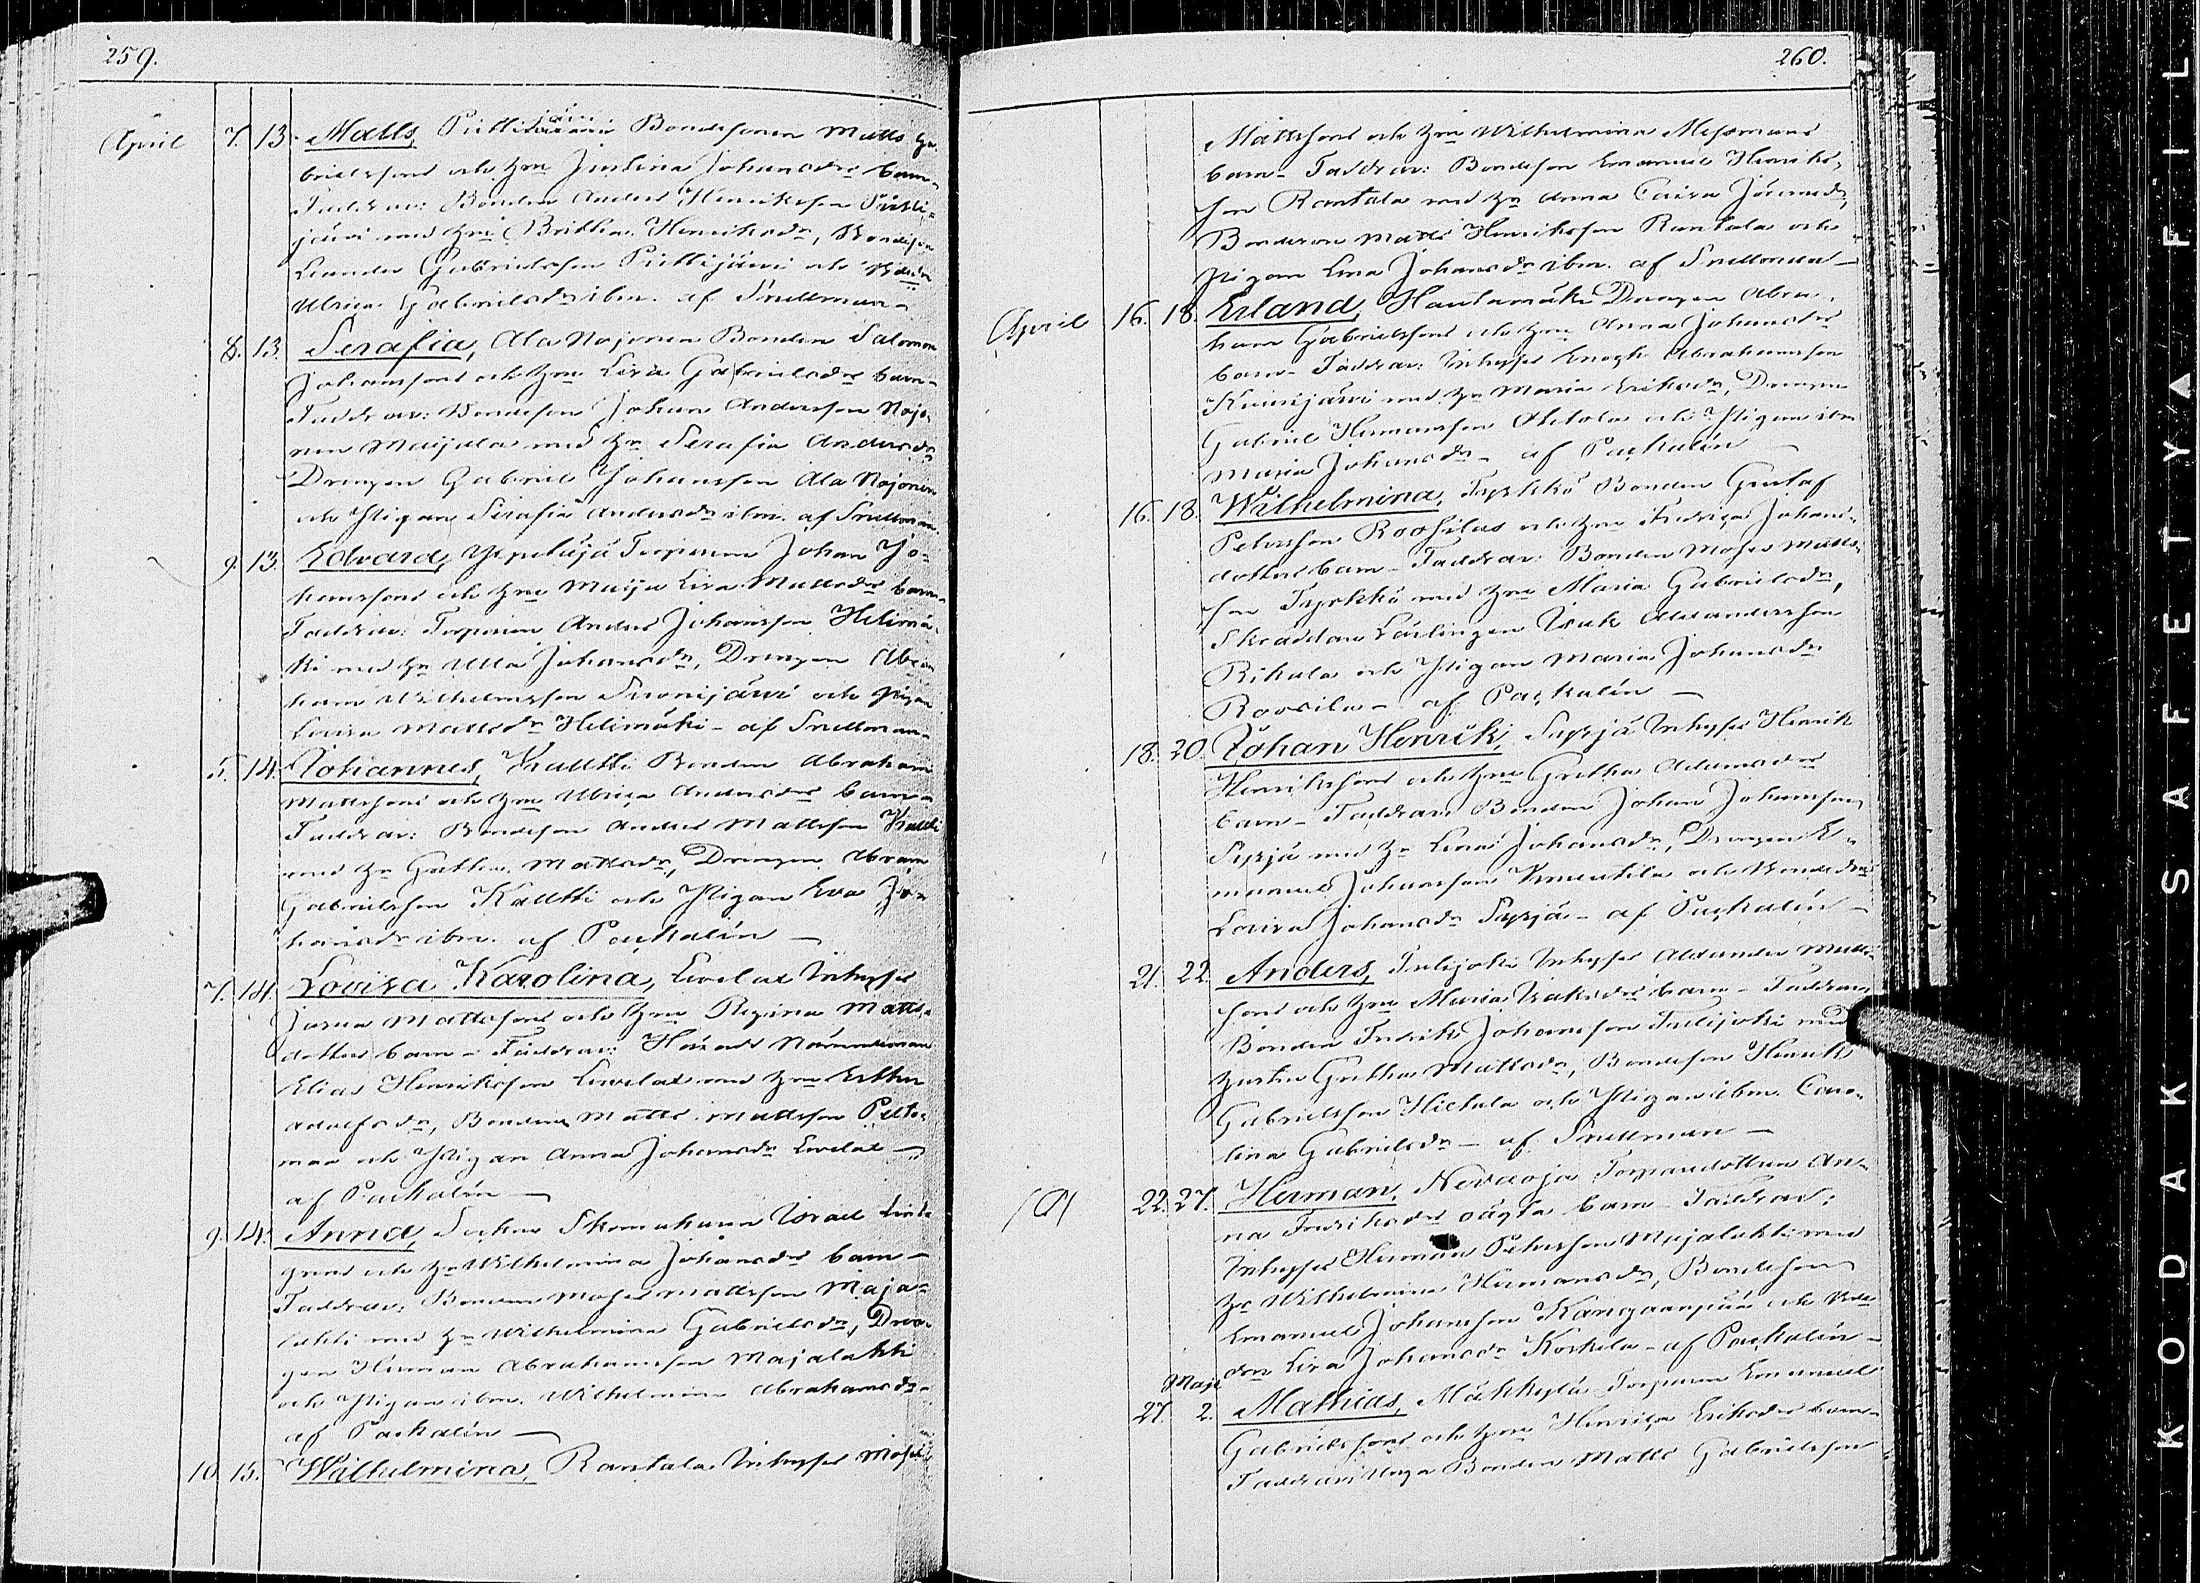 259.
April 7. 13. Matts, Piittisjärvi Bondesonen Matts Ga-
brielssons och Hu Justina Johansdrs barn-
Faddrar: Bonden Anders Henriksson Piitti-
järvi med Hu Britha Henriksdr, Bondeson
Leander Gabrielsson Piittijärvi och Bdedr
Ulrica Gabrielsdr ibm. af Snellman-
8. 13. Serafia, Ala Nojonen Bonden Salomon
Johanssons och Hu Lisa Gabrielsdrs barn-
Faddrar: Bondeson Johan Andersson Nojo-
nen Maijala med Hu Serafia Andersdr
Drengen Gabriel Johansson Ala Nojonen
och Pigan Serafia Andersdr ibm. af Snellman.
9. 13. Edvard, Torparen Johan Jo-
hanssons och Hu Maija Lisa Mattsdrs barn-
Faddrar: Torparen Anders Johansson Helimä-
ki med Hu Ulla Johansdr, Drengen Abra-
ham Wilhelmsson Suonijärvi och Pigan
Lovisa Mattsdr Helimäki - af Snellman-
5. 14. Johannes, Kaltti Bonden Abraham
Mattssons och Hu Ulrica Andersdrs barn-
Faddrar: Bondeson Anders Mattsson Kaltti
med Hu Gretha Mattsdr, Drengen Abram
Gabrielsson Kaltti och Pigan Eva Jo-
hansdr ibm. af Pačkalén -
7. 14. Lovisa Karolina, Levelax Inhyses
Josua Mattssons och Hu Regina Matts-
dotters barn - Faddrar: Härads Nämndeman
Elias Henriksson Levelax med Hu Esther
Adolfsdr, Bonden Matts Mattsson Pelto-
maa och Pigan Anna Johansdr Levelax -
af Pačkalén -
9. 14. Anna, Socknes Skomakaren Israel Lind-
grens och Hu Wilhelmina Johansdrs barn -
Faddrar: Bonden Moses Mattsson Maja-
lahti med Hu Wilhelmina Gabrielsdr, Dren-
gen Herman Abrahamsson Majalahti
och Pigan ibm. Wilhelmina Abrahamsdr-
af Pačkalén -
10. 15. Wilhelmina, Rantala Inhyses Moses
260.
Mattssons och Hu Wilhelmina
barn - Faddrar: Bondeson Emanuel Henriks-
son Rantala med Hu Anna Caisa
Bondeson Matts Henriksson Rantala och
Pigan Lena Johansdr ibm. af Snellman -
April 16. 18. Erland, Hautamäki Drengen Abra-
ham Gabrielssons och Hu Anna Johansdrs
barn - Faddrar: Inhyses Enoch Abrahamsson
Kuusijärvi med Hu Maria Eriksdr, Drengen
Gabriel Hermansson Ahtola och Pigan ibm
Maria Johansdr - af Pačkalén -
16. 18. Wilhelmina, Typkkö Bonden Gustaf
Petersson Roosilas och Hu Fredrica Johans-
dotters barn - Faddrar: Bonden Moses Matts-
son Typkkö med Hu Maria Gabrielsdr,
Skräddare Lärlingen Isak Alexandersson
Rikula och Pigan Maria Johansdr
Roosila - af Pačkalén -
18. 20. Johan Henrik, Typjä Inhyses Henrik
Henrikssons och Hu Gretha Adamsdrs
barn - Faddrar: Bonden Johan Johansson
Typjä med Hu Lena Johansdr, Drengen E-
manuel Johansson och Bondedr
Lovisa Johansdr Typjä - af Pačkalén -
21. 22. Anders, Tulijoki Inhyses Alexander Matts-
sons och Hu Maria Isaksdrs barn - Faddrar:
Bonden Fredrik Johansson Tulijoki med
hustru Gretha Mattsdr, Bondeson Henrik
Gabrielsson Hietala och Pigan ibm. Caro-
lina Gabrielsdr - af Snellman -
22. 27. Herman, Nevaoja Torparedottren An-
na Fredriksdrs oägta barn - Faddrar:
Inhyses Herman Petersson Majalahti med
Hu Wilhelmina Hermansdr, Bondeson
Emanuel Johansson Kangaanpää och Bde-
dr Lisa Johansdr Koskela - af Pačkalén -
Maji
27. 2. Mathias, Mäkkylä Torparen Emanuel
Gabrielssons och Hu Henrica Eriksdrs barn-
Faddrar: Unga Bonden Matts Gabrielsson
KODAK SAFETY FIL